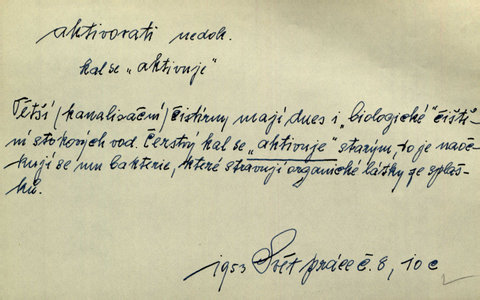 aktivovati nedok.
kal se „aktivuje"
Větší (kanalisační) čistírny mají dnes i „biologické" čiště-
ní stokových vod. Čerstvý kal se „aktivuje" starým, to je naoč-
kují se mu bakterie, které stravují organické látky ze splaš-
ků.
1953 Svět práce č. 8, 10 c